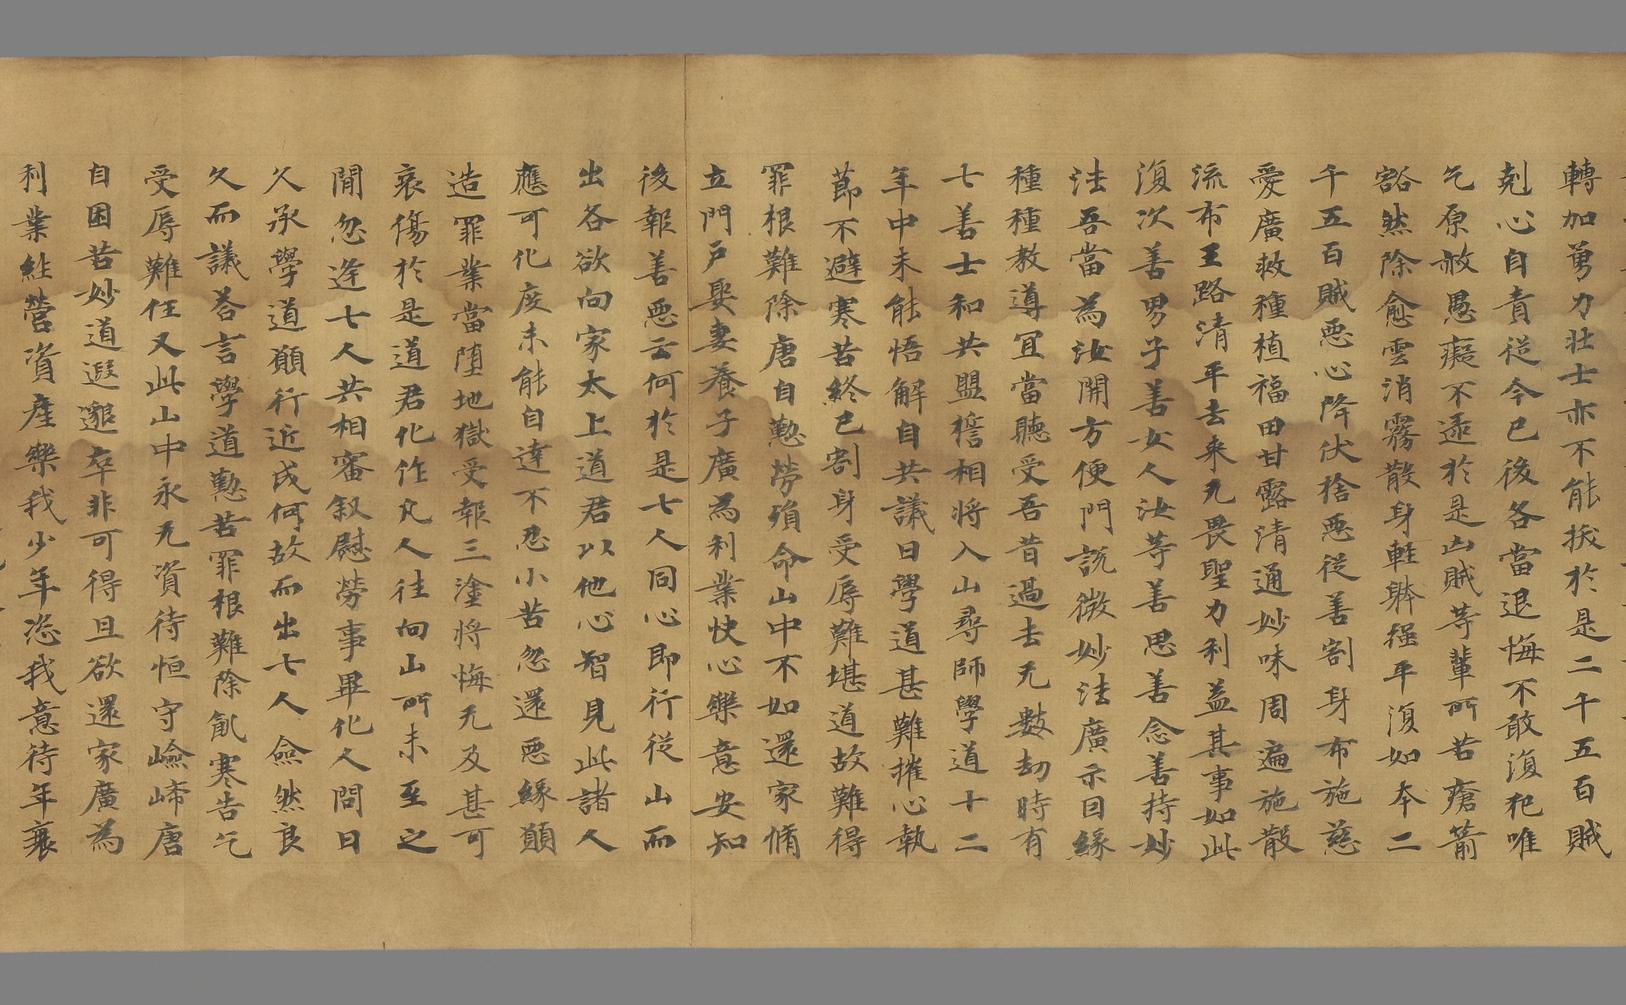 轉加勇力壮士亦不能拔於是二千五百賊
剋心自責従今已後各當退悔不敢復犯唯
乞原赦愚癡不逮於是山賊等輩所苦瘡箭
豁然除愈雲消霧散身軽骵強平復如本二
千五百賊惡心降伏捨惡従善割身布施慈
愛廣救種植福田甘露清通妙味周遍施散
流布王路清平去来无畏聖力利益其事如此
復次善男子善女人汝等善思善念善持妙
法吾當為汝開方便門説微妙法廣示因縁
種種教導宜當聽受吾昔過去无數劫時有
七善士和共盟誓相将入山尋師學道十二
年中未能悟解自共議曰學道甚難摧心執
節不避寒苦終已割身受辱難堪道故難得
罪根難除唐自懃勞殞命山中不如還家脩
立門戸娶妻養子廣為利業快心樂意安知
後報善惡云何於是七人同心即行従山而
出各欲向家太上道君以他心智見此諸人
應可化度未能自達不忍小苦忽還惡縁願
造罪業當堕地獄受報三塗将悔无及甚可
哀傷於是道君化作凡人往向山所未至之
間忽逢七人共相審叙慰勞事畢化人問曰
久承學道願行近成何故而出七人僉然良
久而議荅言學道懃苦罪根難除飢寒告乞
受辱難任又此山中永无資待恒守嶮㟙唐
自困苦妙道遐邈卒非可得且欲還家廣為
利業經營資産樂我少年恣我意待年衰